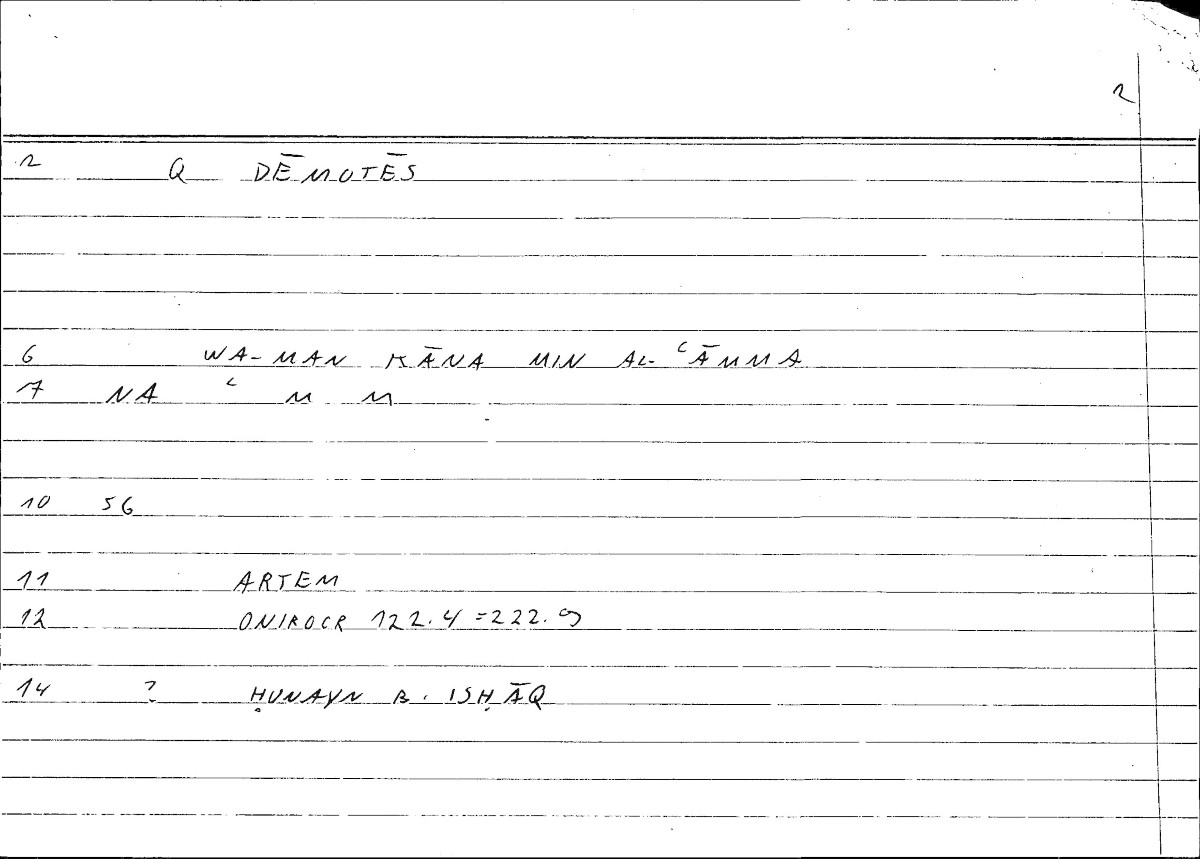 2
2 Q DĒMOTĒS
6 WA-MAN KĀNA MIN AL-ʿĀMMA
7 NA ʿ M M
10 56
11 ARTEM
12 ONIROCR 122.4=222.9
14 ? ḤUNAYN B. ISḤĀQ